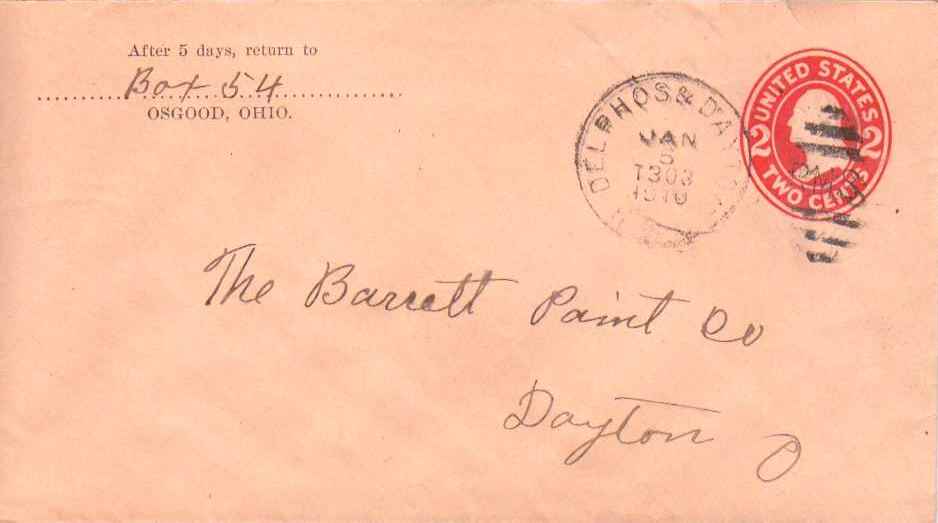 After 5 days, return to
Box 54
OSGOOD, OHIO.
DELPHOS & DAY
JAN
5
T303
1910
UNITED STATES
2 2
TWO CENTS
RMS
The Barrett Paint Co
Dayton O